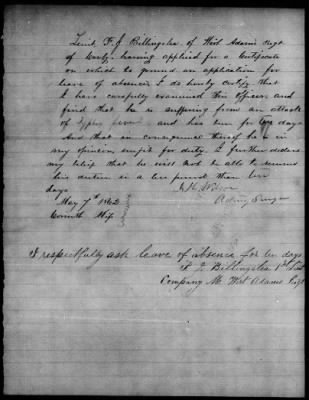 Lieut. F. J. Billingslea of Wirt Adams Regt
of Cavly. having applied for a Certificate
on which to ground an application for
leave of absence, I do hereby certify that
I have carefully examined this Officer and
find that he is suffering from an attack
of fever and has been for days
And that in consequence thereof he is
in my opinion unfit for duty. I further declare
my belief that he will not be able to resume
his duties in a less period than ten
days
May 7th 1862
Corinth Mip
Acting Surgn
I respectfully ask leave of absence for ten days
F. J. Billingslea 1st Lieut
Company M. Wirt Adams Regt